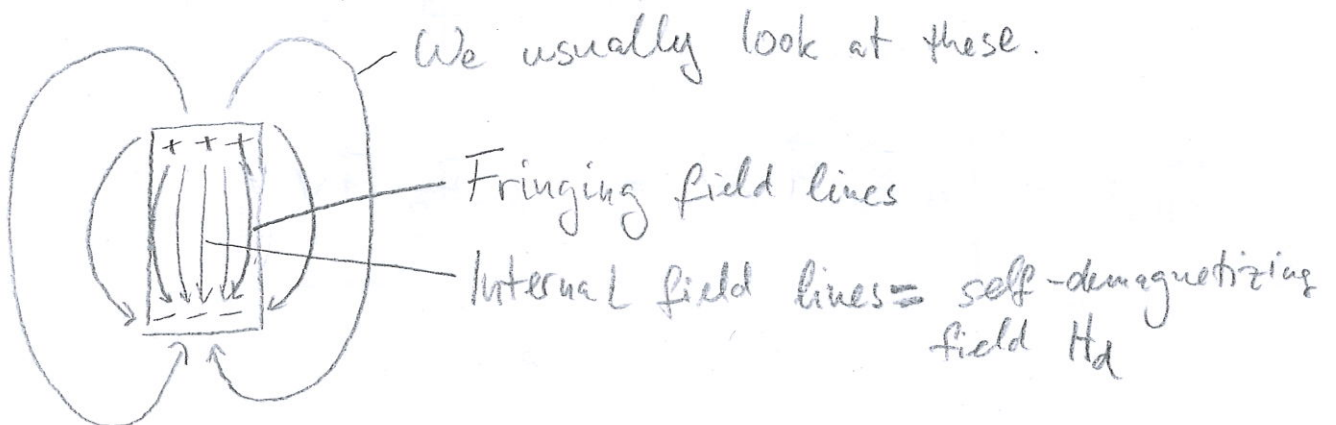 We usually look at these.
+ + +
Fringing field lines
Internal field lines = self-demagnetizing
field Hd
- - - -